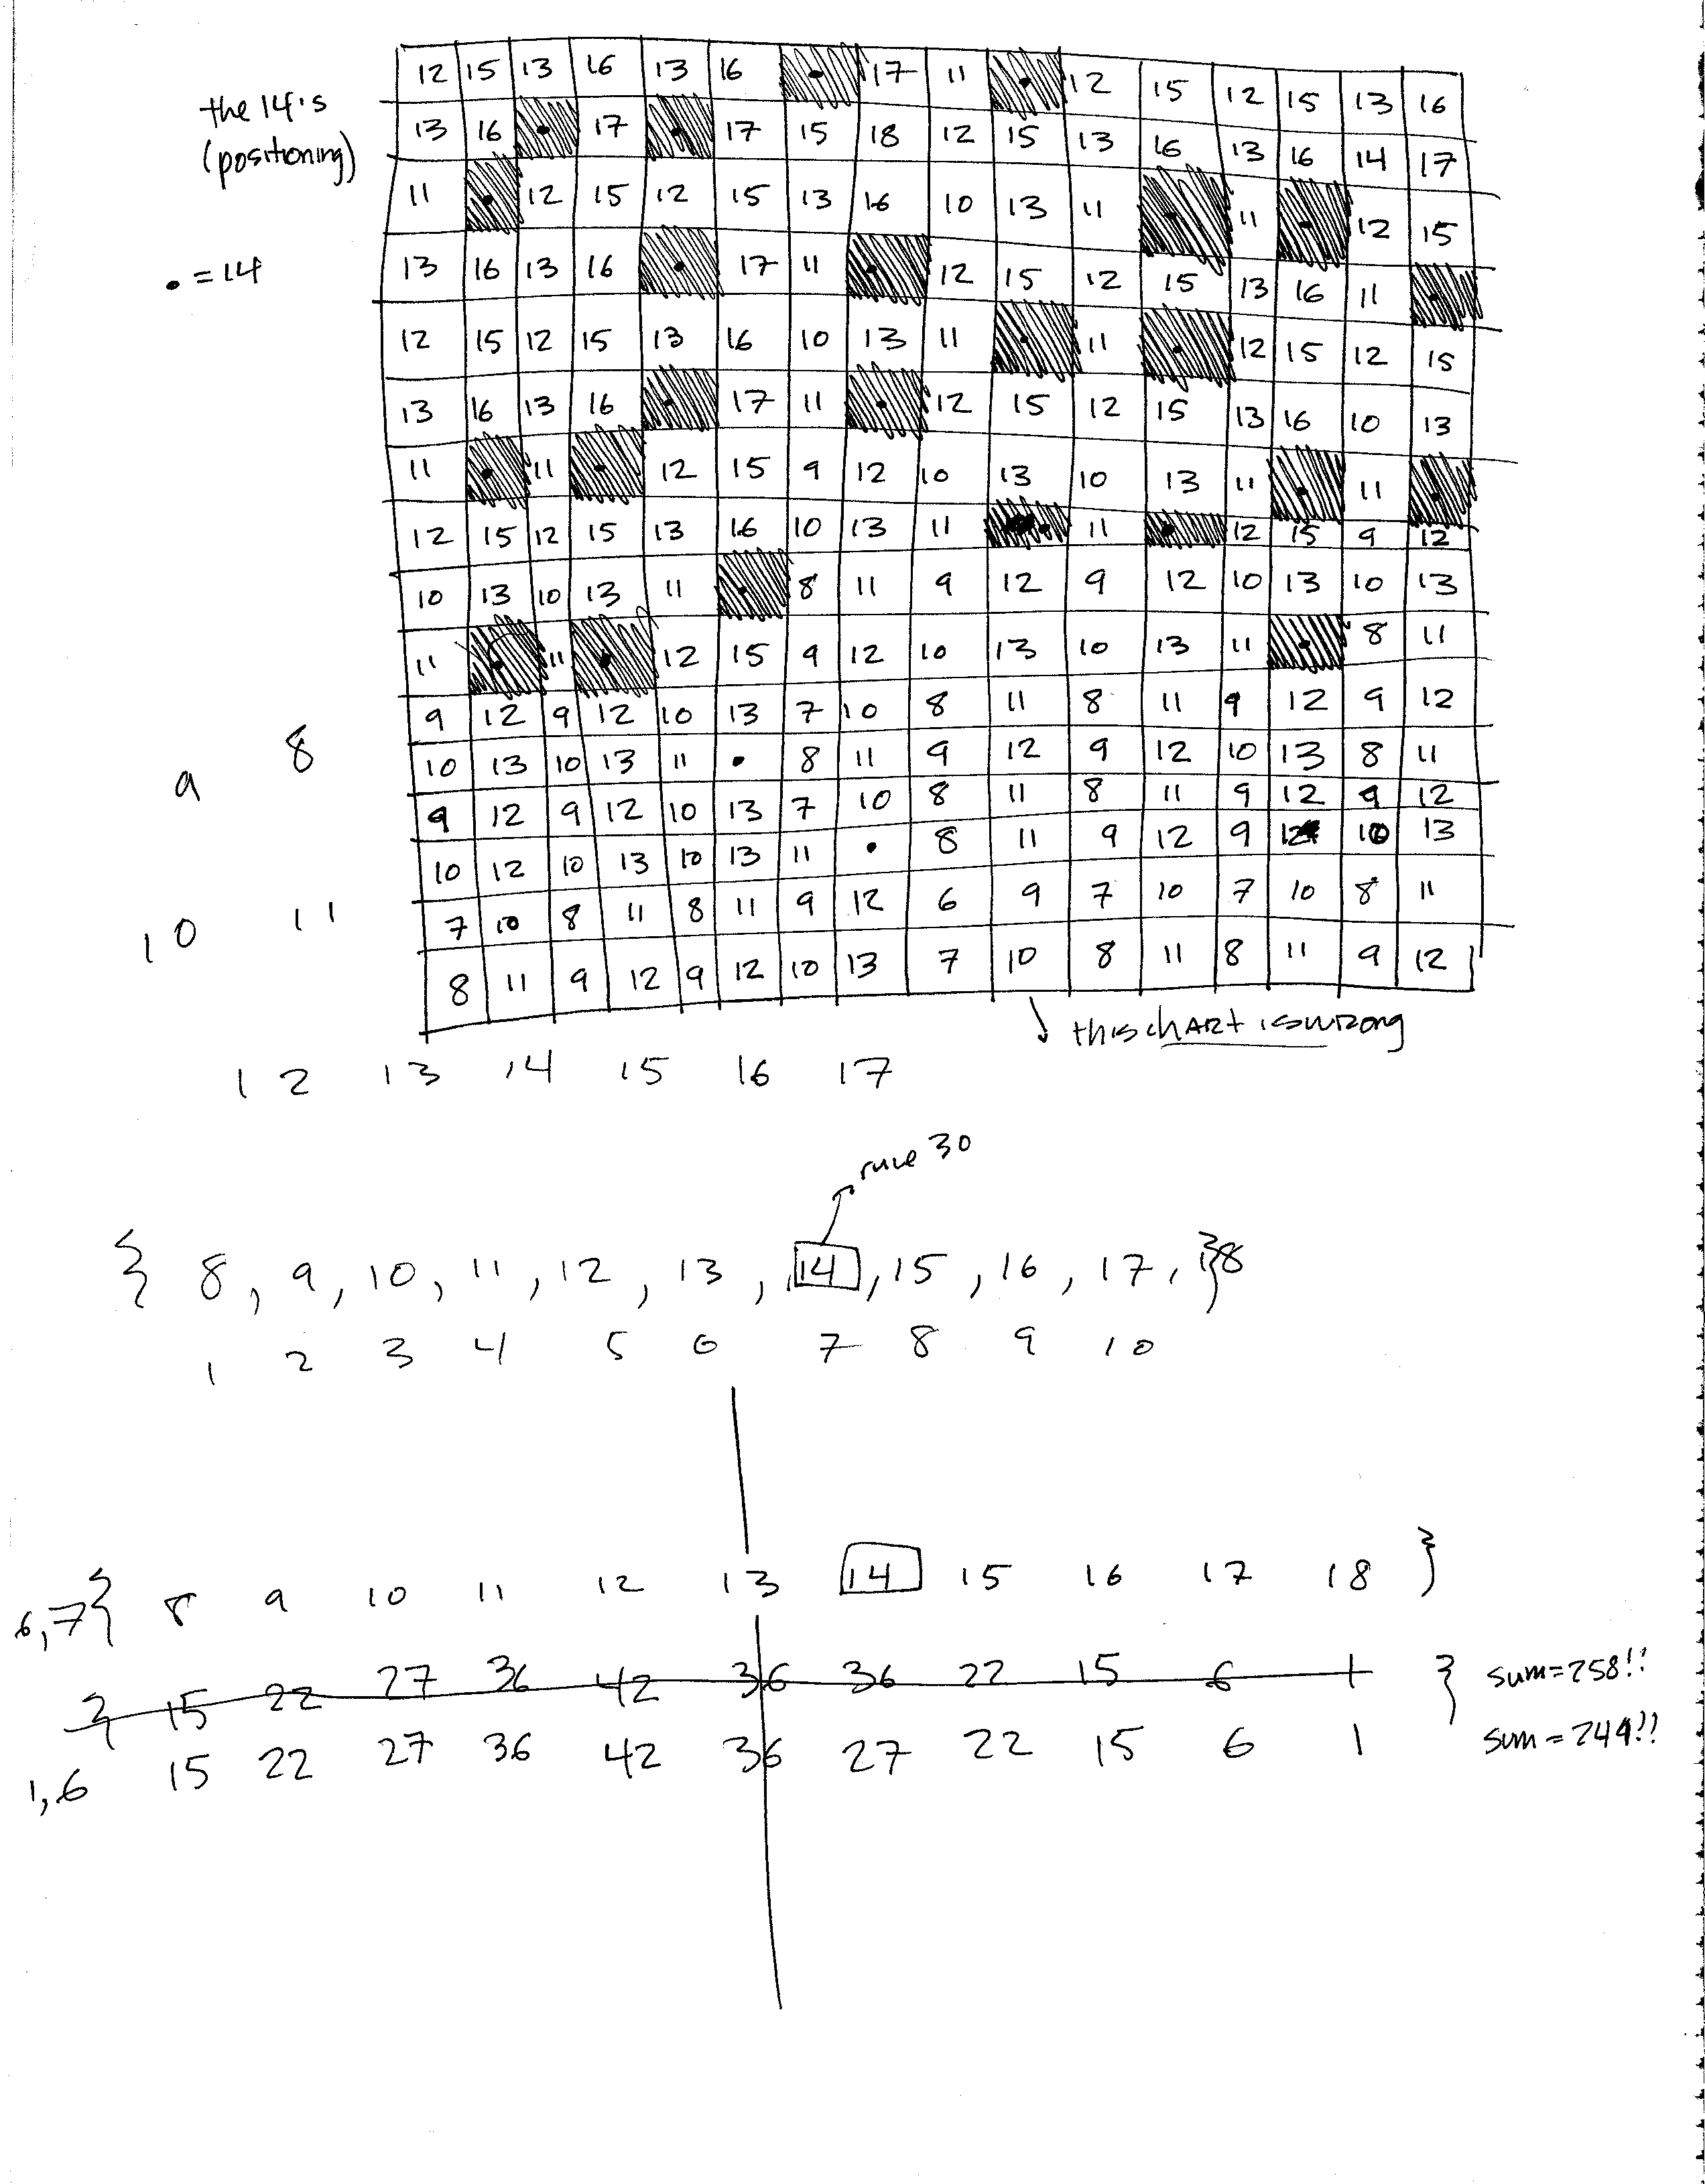 the 14's
(positioning)
• = 14
12 15 13 16 13 16 • 17 11 • 12 15 12 15 13 16
13 16 • 17 • 17 15 18 12 15 13 16 13 16 14 17
11 • 12 15 12 15 13 16 10 13 11 • 11 • 12 15
13 16 13 16 • 17 11 • 12 15 12 15 13 16 11 •
12 15 12 15 13 16 10 13 11 • 11 • 12 15 12 15
13 16 13 16 • 17 11 • 12 15 12 15 13 16 10 13
11 • 11 • 12 15 9 12 10 13 10 13 11 • 11 •
12 15 12 15 13 16 10 13 11 • 11 • 12 15 9 12
10 13 10 13 11 • 8 11 9 12 9 12 10 13 10 13
11 • 11 • 12 15 9 12 10 13 10 13 11 • 8 11
9 12 9 12 10 13 7 10 8 11 8 11 9 12 9 12
10 13 10 13 11 • 8 11 9 12 9 12 10 13 8 11
9 12 9 12 10 13 7 10 8 11 8 11 9 12 9 12
10 12 10 13 10 13 11 • 8 11 9 12 9 12 10 13
7 10 8 11 8 11 9 12 6 9 7 10 7 10 8 11
8 11 9 12 9 12 10 13 7 10 8 11 8 11 9 12
9 8
10 11
this CHART is wrong
12 13 14 15 16 17
rule 30
{ 8, 9, 10, 11, 12, 13, 14, 15, 16, 17, }8
1 2 3 4 5 6 7 8 9 10
6,7{ 8 9 10 11 12 13 14 15 16 17 18 }
{ 15 22 27 36 42 36 36 22 15 6 1 } sum=258!!
1,6 15 22 27 36 42 36 27 22 15 6 1 sum=249!!